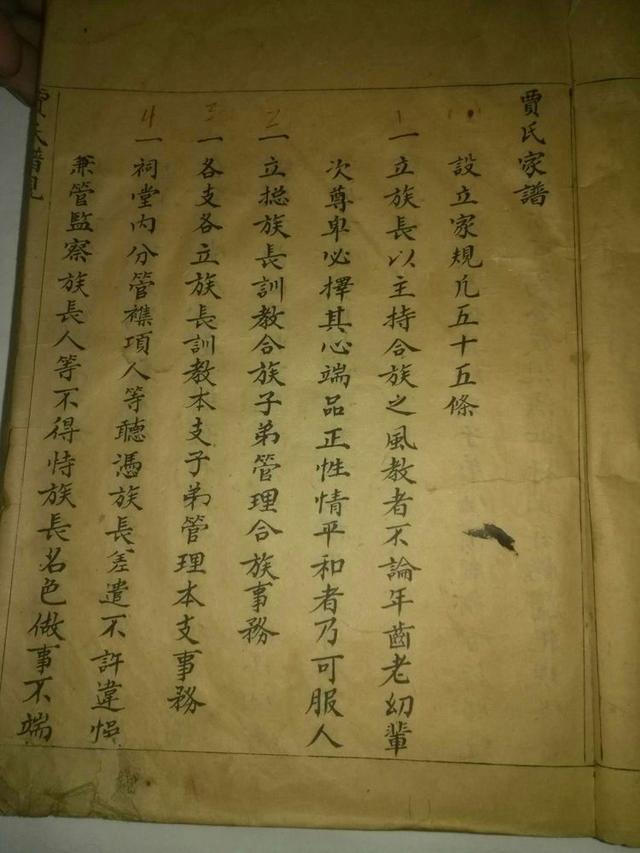 賈氏家譜
設立家規凢五十五條
1
一立族長以主持合族之風教者不論年齒老幼輩
次尊卑必擇其心端品正性情平和者乃可服人
2
一立総族長訓教合族子弟管理合族事務
3
一各支各立族長訓教本支子弟管理本支事務
4
一祠堂内分管襍項人等聽慿族長差遣不許違悞
兼管監察族長人等不得恃族長名色做事不端
賈氏譜